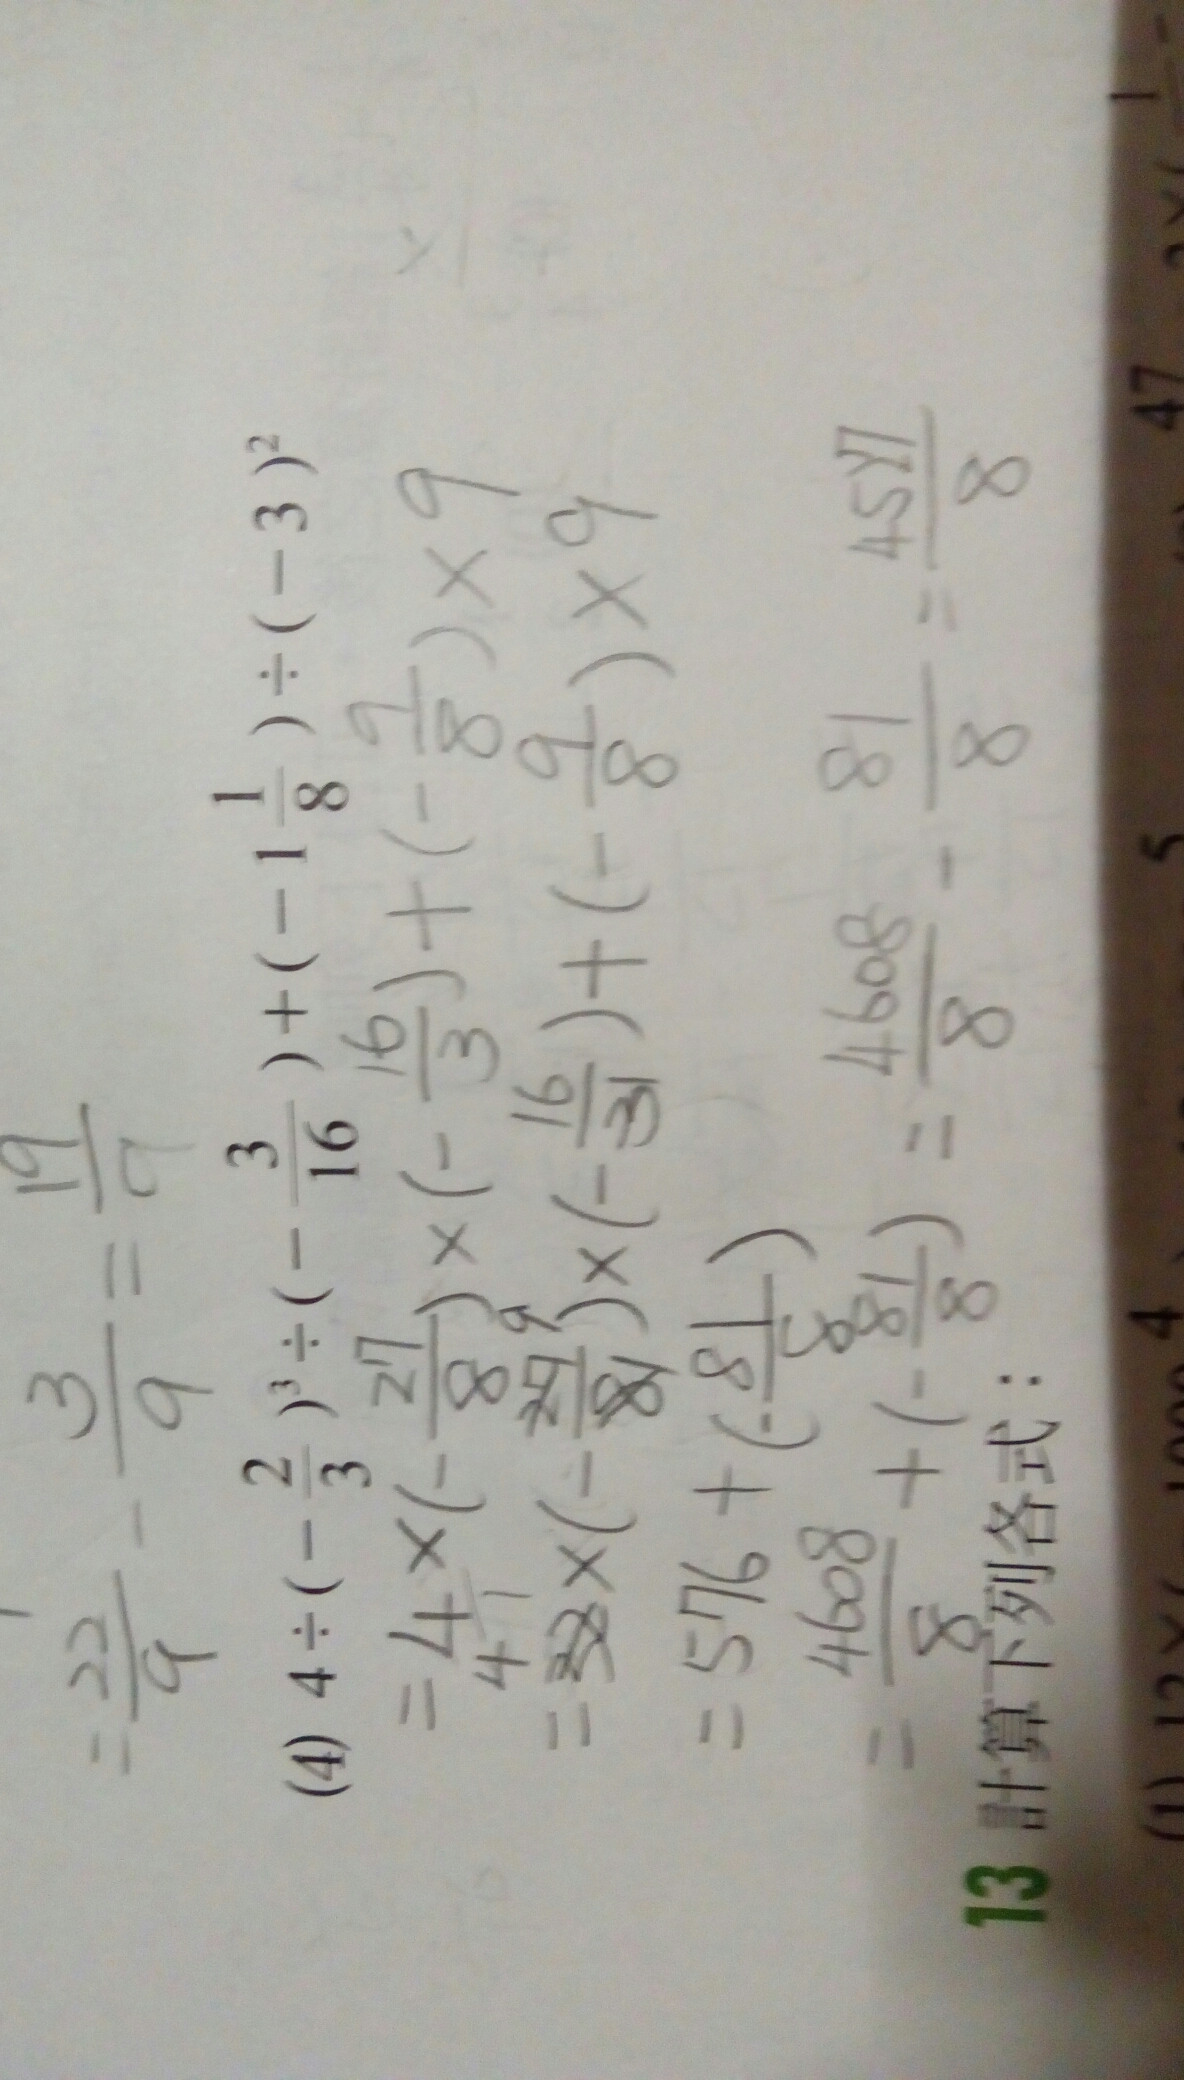 = 22/9 - 3/9 = 19/9
(4) 4÷(-2/3)³÷(-3/16)+(-1 1/8)÷(-3)²
=4×(-27/8)×(-16/3)+(-9/8)×9
=32×(-27/8)×(-16/3)+(-9/8)×9
=576+(-81/8)
=4608/8+(-81/8)=4608/8-81/8=4527/8
13 計算下列各式: